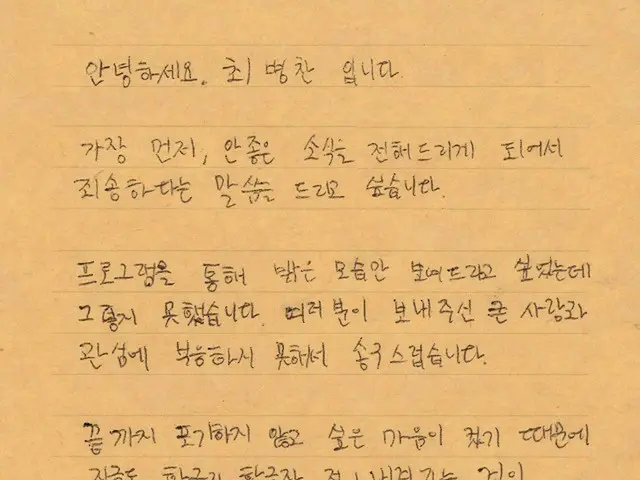 안녕하세요. 최병찬 입니다.
가장 먼저, 안좋은 소식을 전해드리게 되어서
죄송하다는 말씀을 드리고 싶습니다.
프로그램을 통해 밝은 모습만 보여드리고 싶었는데
그렇지 못했습니다. 여러분이 보내주신 큰 사랑과
관심에 부응하지 못해서 송구스럽습니다.
끝까지 포기하지 않고 싶은 마음이 컸기 때문에